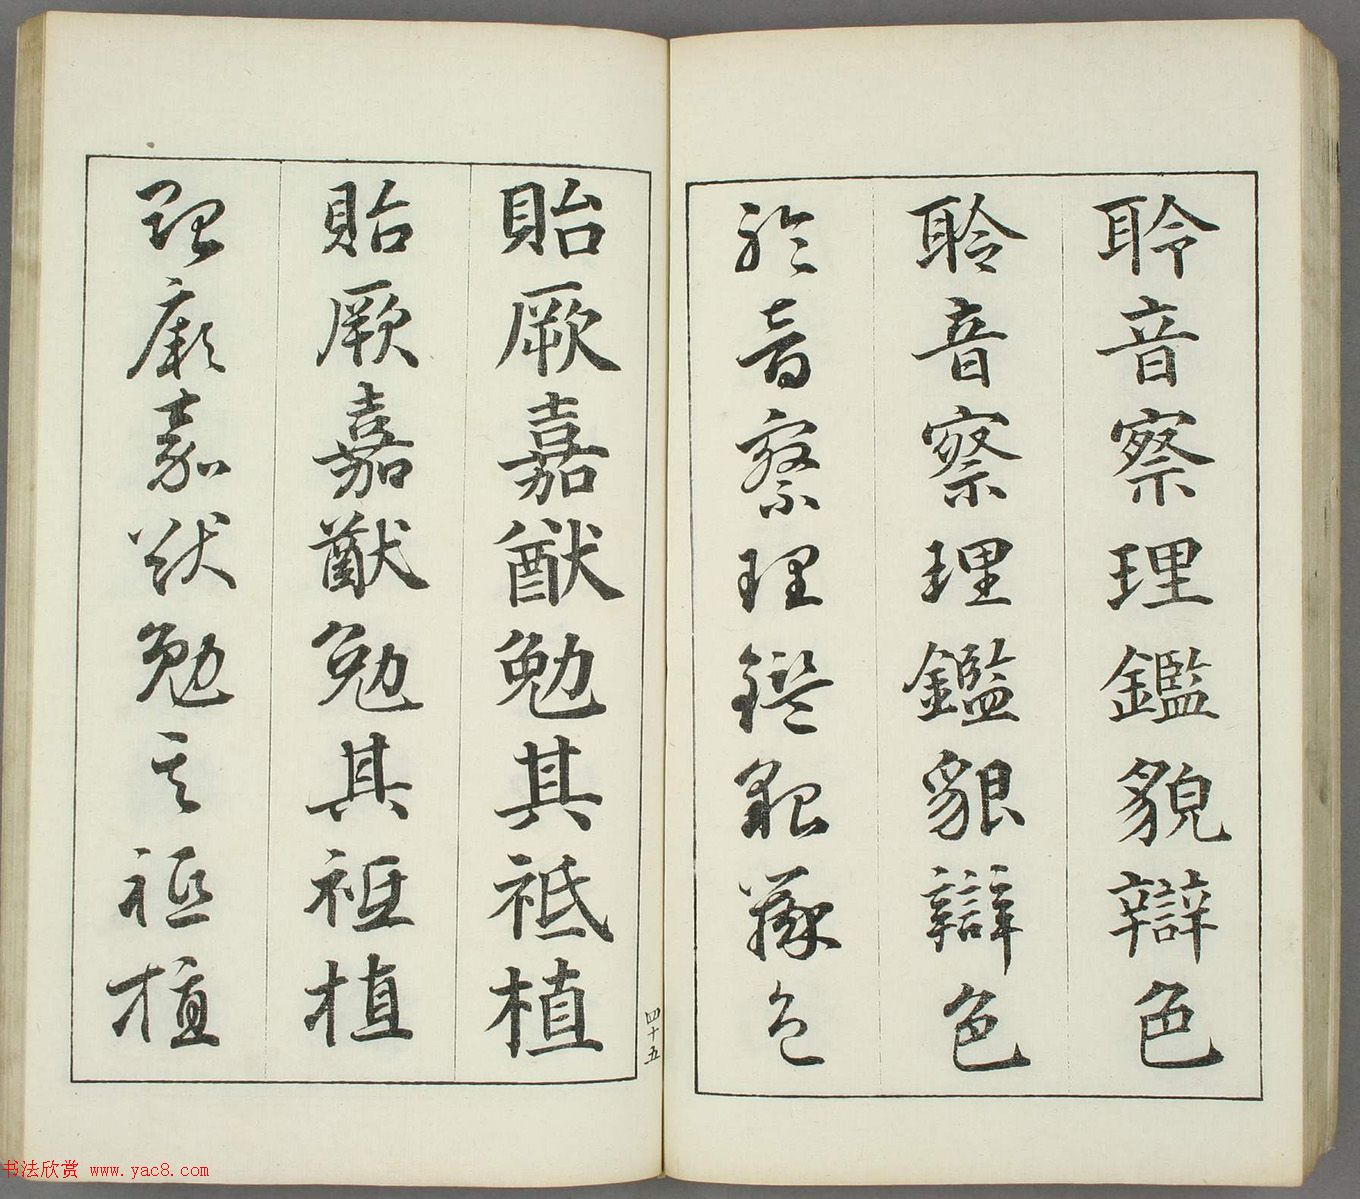 聆音察理鑑貌辯色
聆音察理鑑貌辯色
聆音察理鑑貌辯色
四十五
貽厥嘉猷勉其祗植
貽厥嘉猷勉其祗植
貽厥嘉猷勉其祗植
书法欣赏 www.yac8.com